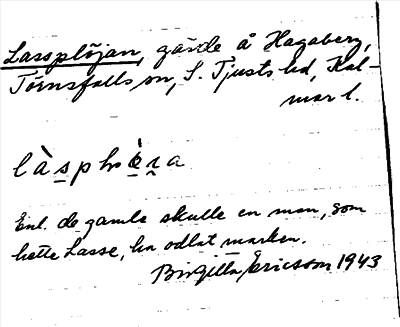 Lassplöjan, gärde å Hagaberg,
Törnsfalls sn, S. Tjusts hd, Kal-
mar l.
Enl. de gamla skulle en man, som
hette Lasse, ha odlat marken.
Birgitta Ericsson 1943